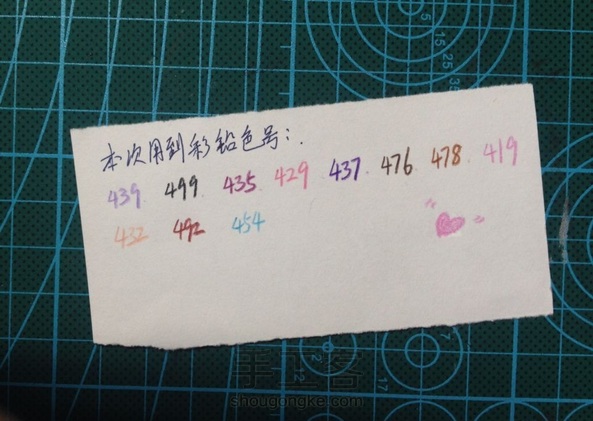 本次用到彩铅色号:.
439. 499. 435. 429. 437. 476 478. 419
432. 492. 454
手工客
shougongke.com